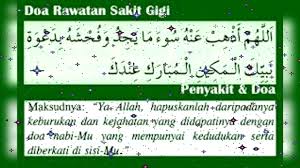 Doa Rawatan Sakit Gigi
اَللّٰهُمَّ اَذْهِبْ عَنْهُ سُوْءَ مَا يَجِدُ وَفُحْشَهُ بِدَعْوَةِ
نَبِيِّكَ الْمَكِيْنِ الْمُبَارَكِ عِنْدَكَ
Penyakit & Doa
Maksudnya: "Ya Allah, hapuskanlah daripadanya
keburukan dan kejahatan yang didapatinya dengan
doa nabi-Mu yang mempunyai kedudukan serta
diberkati di sisi-Mu."